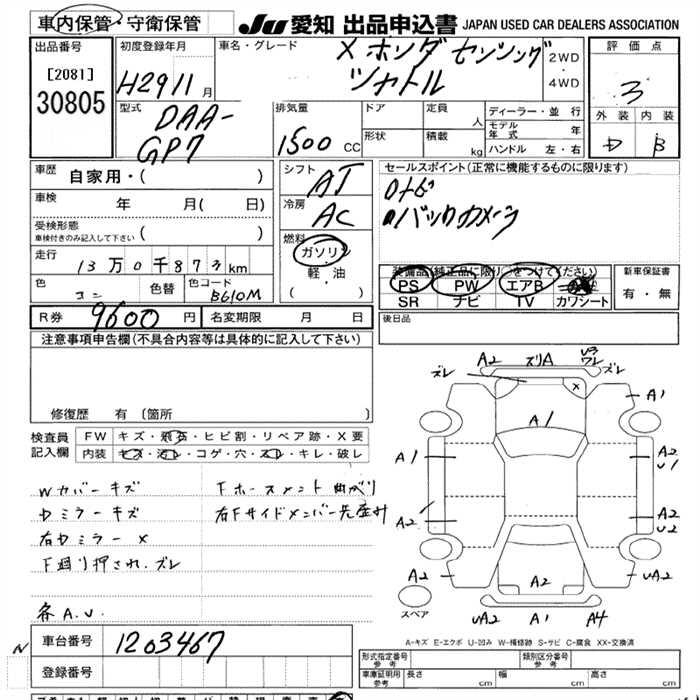 車内保管・守衛保管
JU 愛知 出品申込書 JAPAN USED CAR DEALERS ASSOCIATION
出品番号
[2081]
30805
初度登録年月
H29 11 月
車名・グレード
X ホンダ センシング
シャトル
2WD
・
4WD
評価点
3
外装 内装
D B
型式
DAA-
GP7
排気量
1500 CC
ドア
定員
人
形状
積載
kg
ディーラー・並行
モデル年式 年
ハンドル 左・右
車歴
自家用・( )
車検
年 月( 日)
受検形態
車検付きのみ記入して下さい ( )
走行
13万0千873km
色
コン
色替
色コード
B610M
シフト
AT
冷房
AC
燃料
ガソリン
軽・油
( )
セールスポイント(正常に機能するものに限ります)
ナビ
バックカメラ
装備品(純正品に限り○をつけてください)
PS PW エアB
SR ナビ TV カワシート
新車保証書
有・無
R券 9600 円 名変期限 月 日
後日品
注意事項申告欄(不具合内容等は具体的に記入して下さい)
修復歴 有 〔箇所
検査員
記入欄
FW キズ・飛石・ヒビ割・リペア跡・X要
内装 キズ・汚レ・コゲ・穴・スレ・キレ・破レ
Wカバーキズ
Dミラーキズ
右Dミラー X
下廻り押され、ズレ
各A.U.
Fホースメント曲がり
右Fサイドメンバー先歪み
A2 ズリA
ズレ
ワレ
ズレ
X
A1
A1
A1
A2
U1
A2
A2
U2
A2
A2
UA2
UA2 A1 A4
スペア
A-キズ E-エクボ U-凹み W-補修跡 S-サビ C-腐食 XX-交換済
N
車台番号 1203467
登録番号
形式指定番号
参考
類別区分番号
参考
車庫証明用
参考
長さ cm 幅 cm 高さ cm